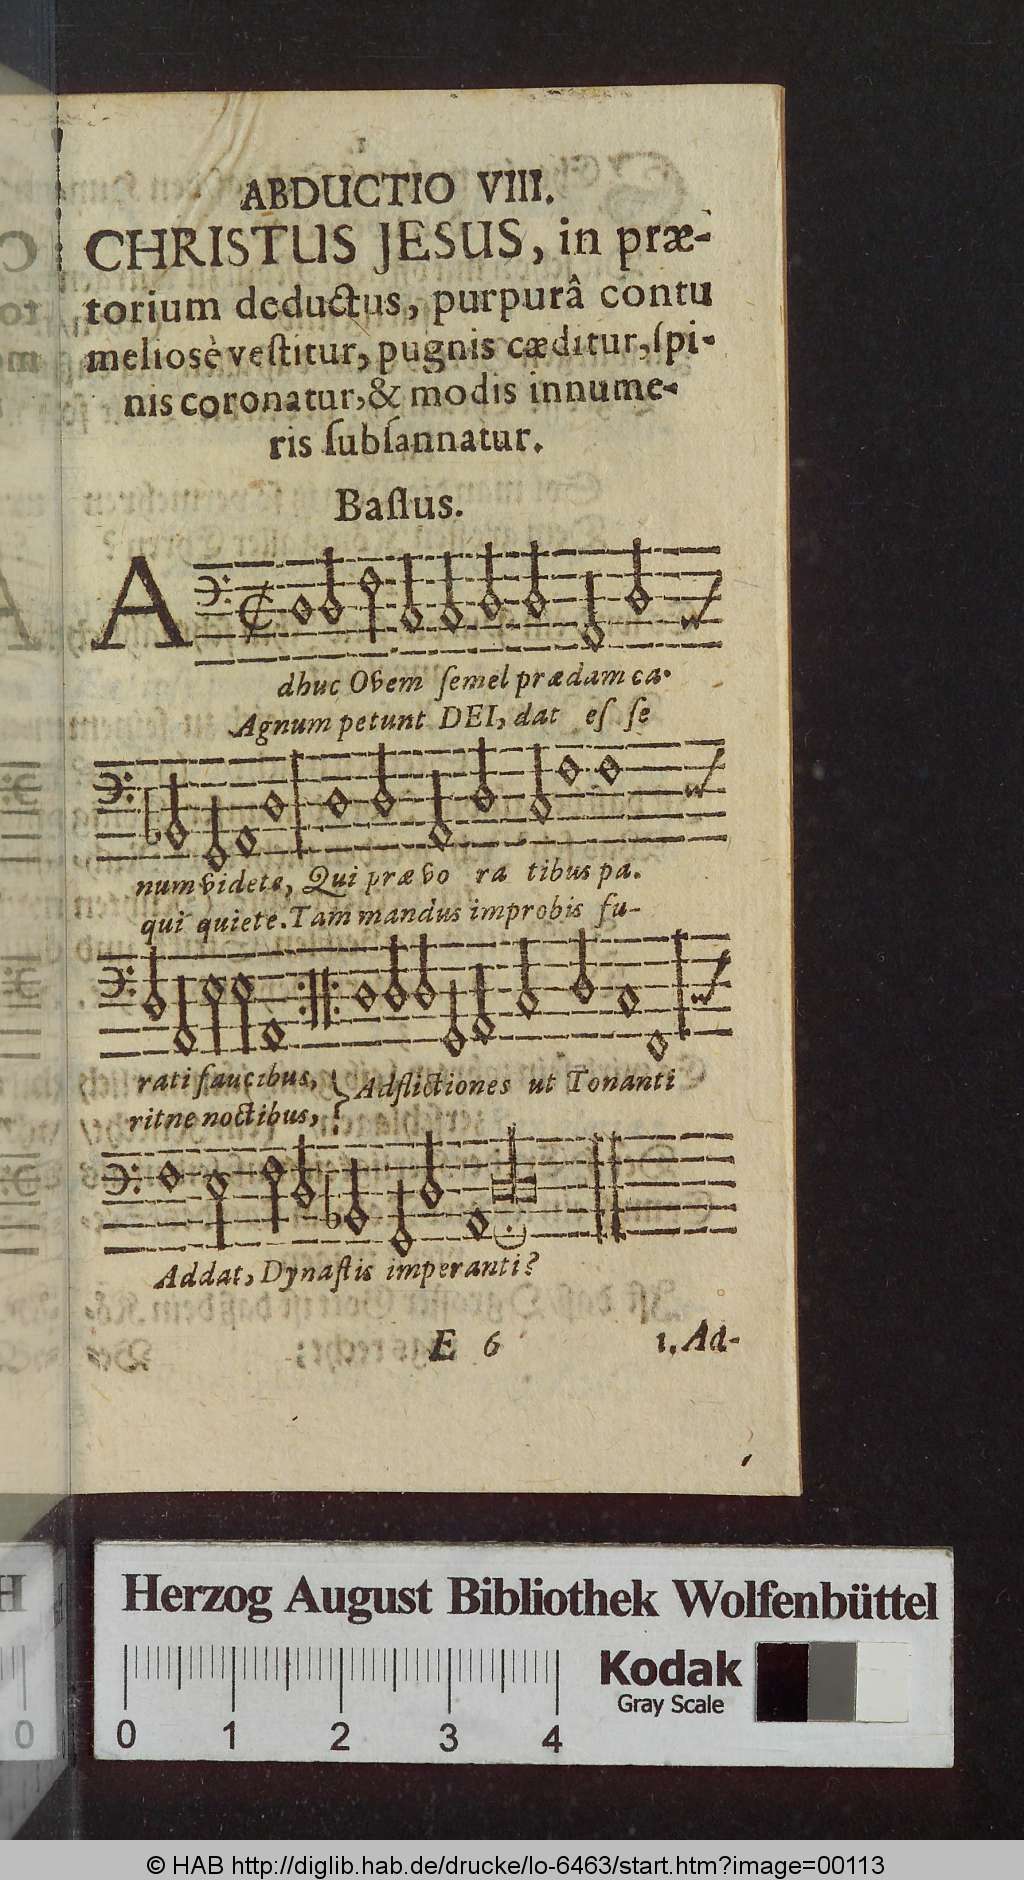 ABDUCTIO VIII.
CHRISTUS JESUS, in præ-
torium deductus, purpurâ contu
meliosè veſtitur, pugnis cæditur, ſpi-
nis coronatur, & modis innume-
ris ſubſannatur.
Baſſus.
A
dhuc Ovem ſemel prædam ca-
Agnum petunt DEI, dat eſ ſe
num videte, Qui præ vo ra tibus pa-
qui quiete. Tam mandus improbis fu-
rati faucibus,
ritne noctibus,
} Adflictiones ut Tonanti
Addat, Dynaſtis imperanti?
E 6 1. Ad-
Herzog August Bibliothek Wolfenbüttel
Kodak
Gray Scale
0 1 2 3 4
0
© HAB http://diglib.hab.de/drucke/lo-6463/start.htm?image=00113